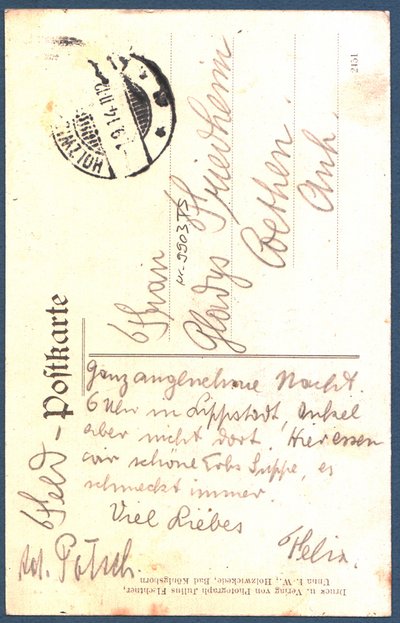 Feld-Postkarte
HOLZWICKEDE
1.9.14.11-12
Frau
Gladys Friedheim
Coethen.
Anh.
Nr. 9903 TS
2151
Ganz angenehme Nacht.
6 Uhr in Lippstadt, Onkel
aber nicht dort. Hier essen
wir schöne Erbs Suppe, es
schmeckt immer.
Viel Liebes
Felix.
Abs. Potsch.
Druck u. Verlag von Photograph Julius Fischer,
Unna i. W., Holzwickede, Bad Königsborn